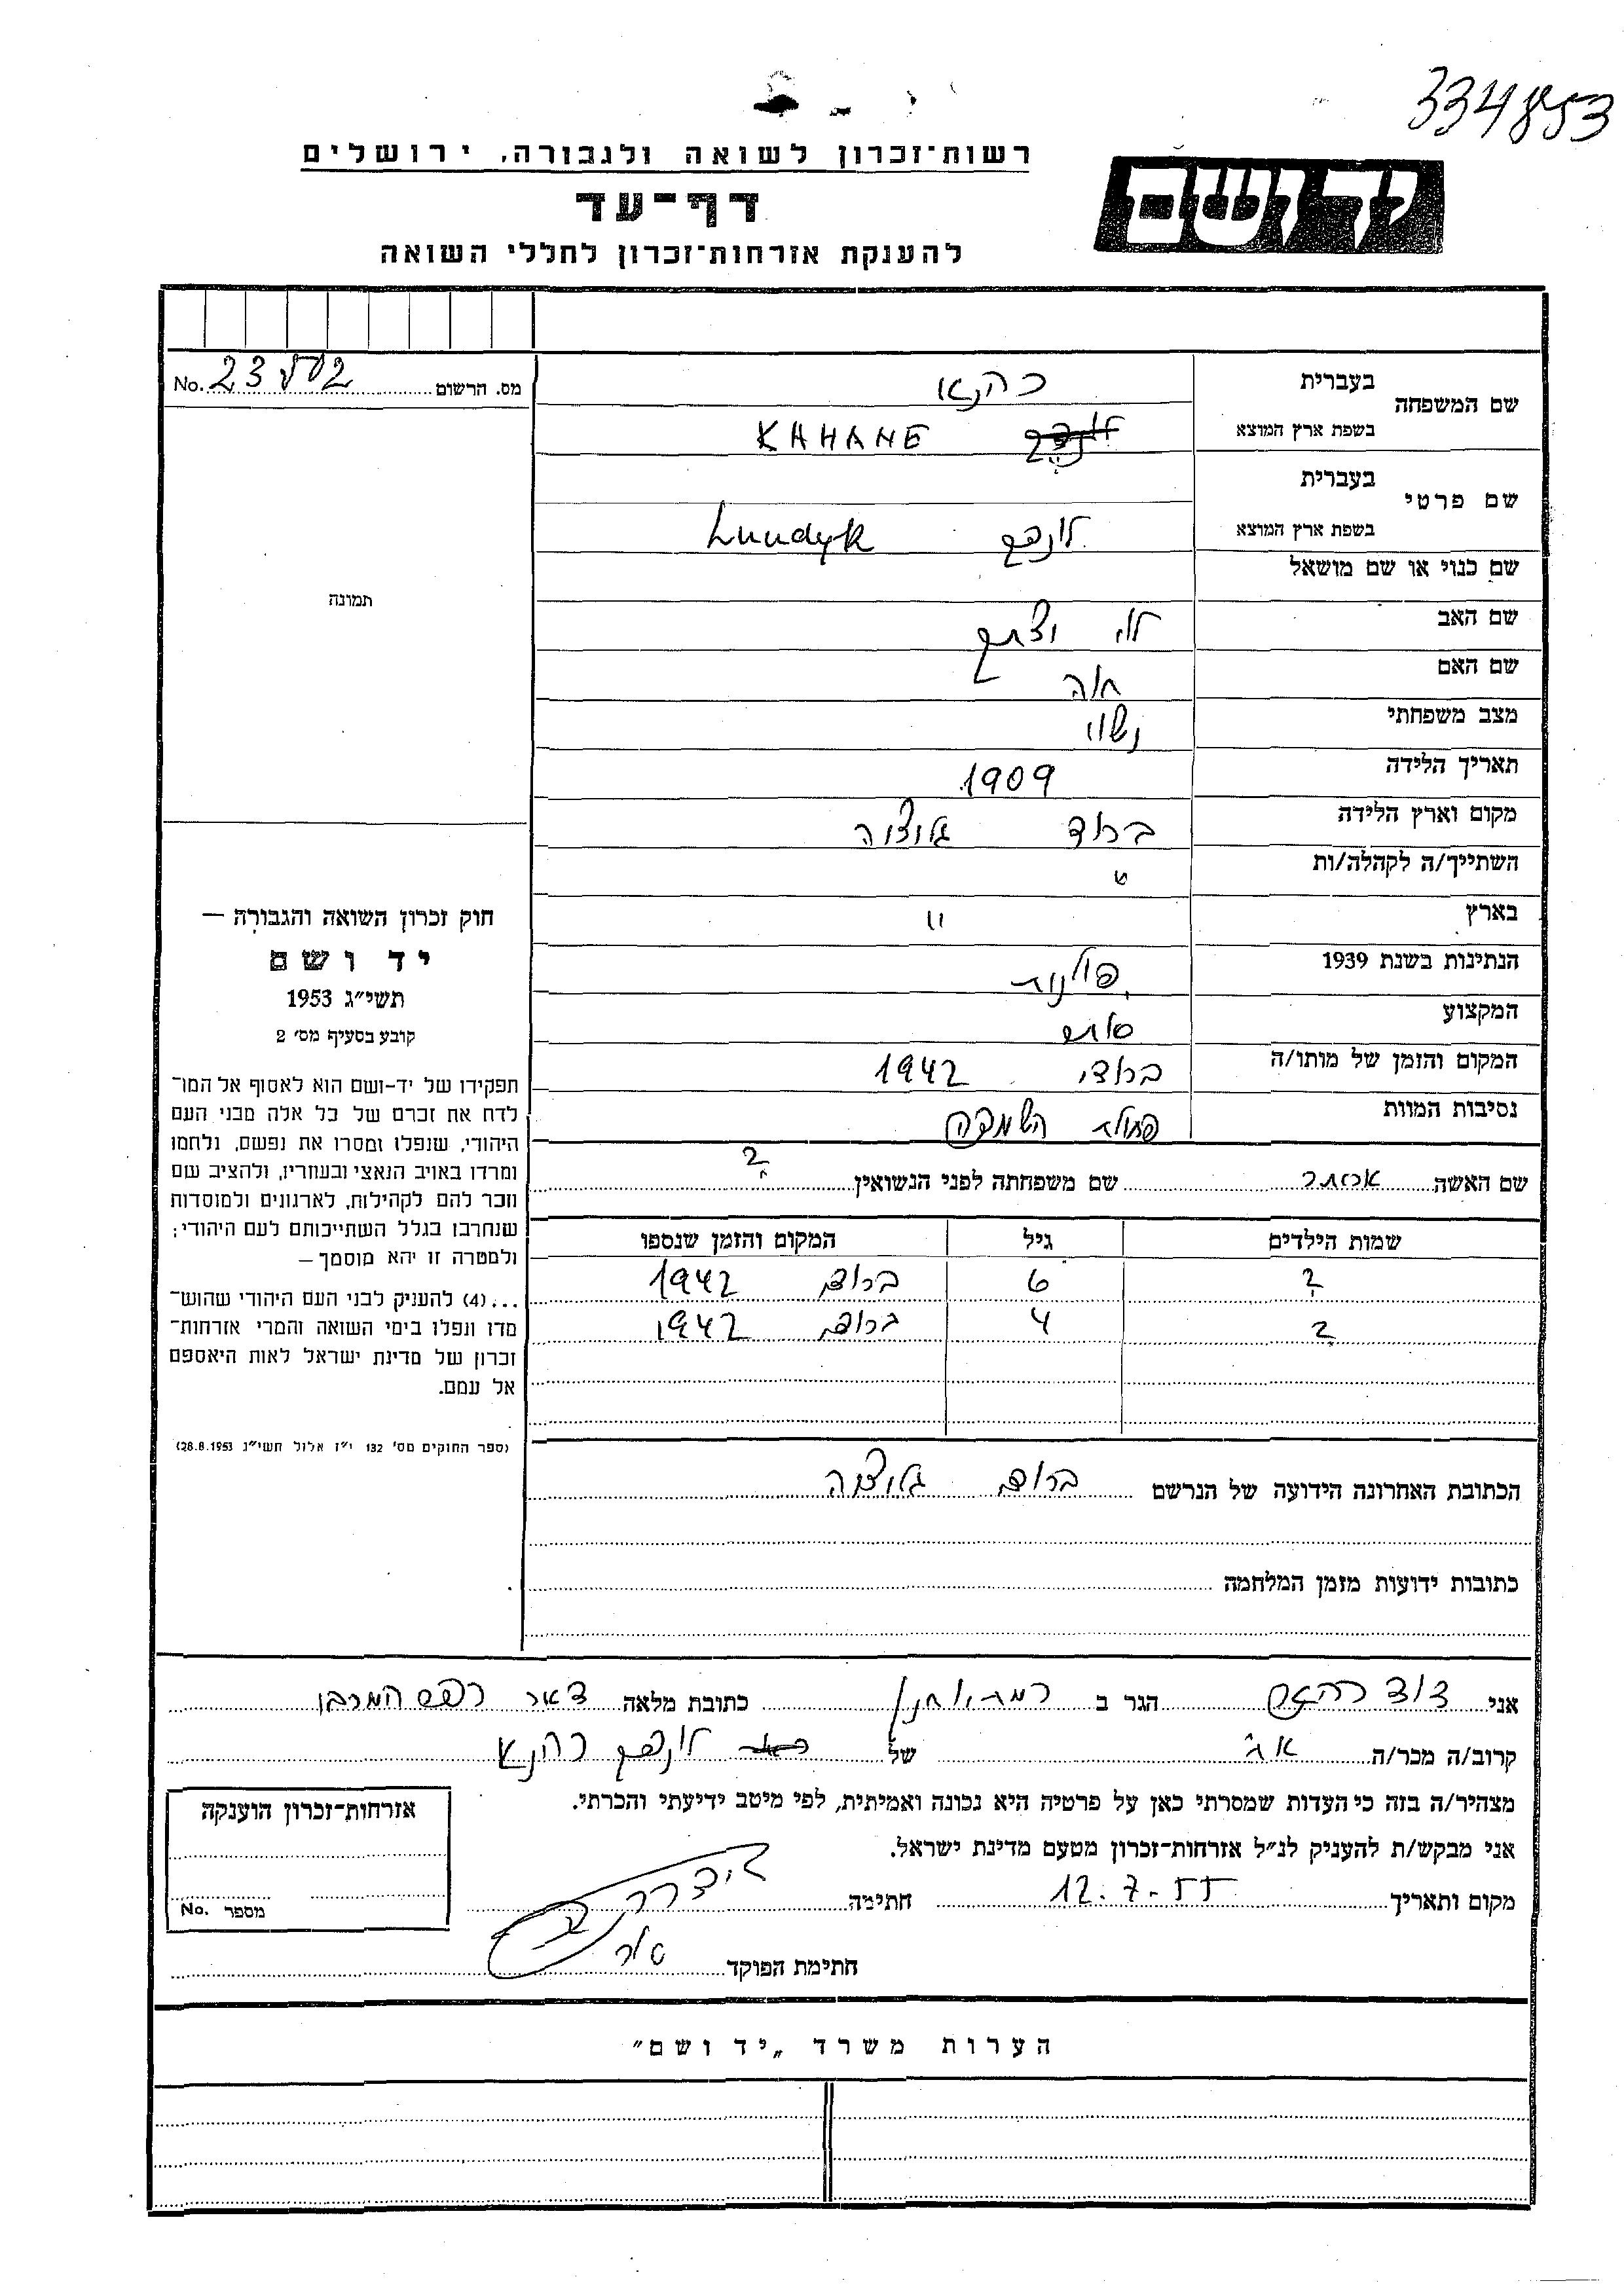 334853
יד ושם
רשות-זכרון לשואה ולגבורה, ירושלים
דף-עד
להענקת אזרחות-זכרון לחללי השואה
מס. הרשום No.
שם המשפחה
בעברית כהנא
בשפת ארץ המוצא KAHANE
שם פרטי
בעברית
בשפת ארץ המוצא לונדק Lundyk
שם כנוי או שם מושאל
שם האב
שם האם חוה
מצב משפחתי נשוי
תאריך הלידה 1909
מקום וארץ הלידה ברוד גליציה
השתייך/ה לקהלה/ות "
בארץ "
הנתינות בשנת 1939 פולנית
המקצוע סוחר
המקום והזמן של מותו/ה ברודי 1942
נסיבות המוות השמדה
שם האשה אסתר שם משפחתה לפני הנשואין ?
שמות הילדים גיל המקום והזמן שנספו
? 6 ברודי 1942
? 4 ברודי 1942
הכתובת האחרונה הידועה של הנרשם ברודי גליציה
כתובות ידועות מזמן המלחמה
תמונה
חוק זכרון השואה והגבורה —
יד ושם
תשי״ג 1953
קובע בסעיף מס׳ 2
תפקידו של יד-ושם הוא לאסוף אל המו־
לדת את זכרם של כל אלה מבני העם
היהודי, שנפלו ומסרו את נפשם, נלחמו
ומרדו באויב הנאצי ובעוזריו, ולהציב שם
וזכר להם לקהילות, לארגונים ולמוסדות
שנחרבו בגלל השתייכותם לעם היהודי;
ולמטרה זו יהא מוסמך —
...(4) להעניק לבני העם היהודי שהוש־
מדו ונפלו בימי השואה והמרי אזרחות־
זכרון של מדינת ישראל לאות היאספם
אל עמם.
(ספר החוקים מס׳ 132 י״ז אלול תשי״ג 28.8.1953)
אני דוד כהנא הגר ב כתובת מלאה דאר
קרוב/ה מכר/ה אח של לונדק כהנא
מצהיר/ה בזה כי העדות שמסרתי כאן על פרטיה היא נכונה ואמיתית, לפי מיטב ידיעתי והכרתי.
אני מבקש/ת להעניק לנ״ל אזרחות-זכרון מטעם מדינת ישראל.
מקום ותאריך 12.7.55 חתימה
חתימת הפוקד
אזרחות-זכרון הוענקה
מספר No.
הערות משרד „יד ושם״